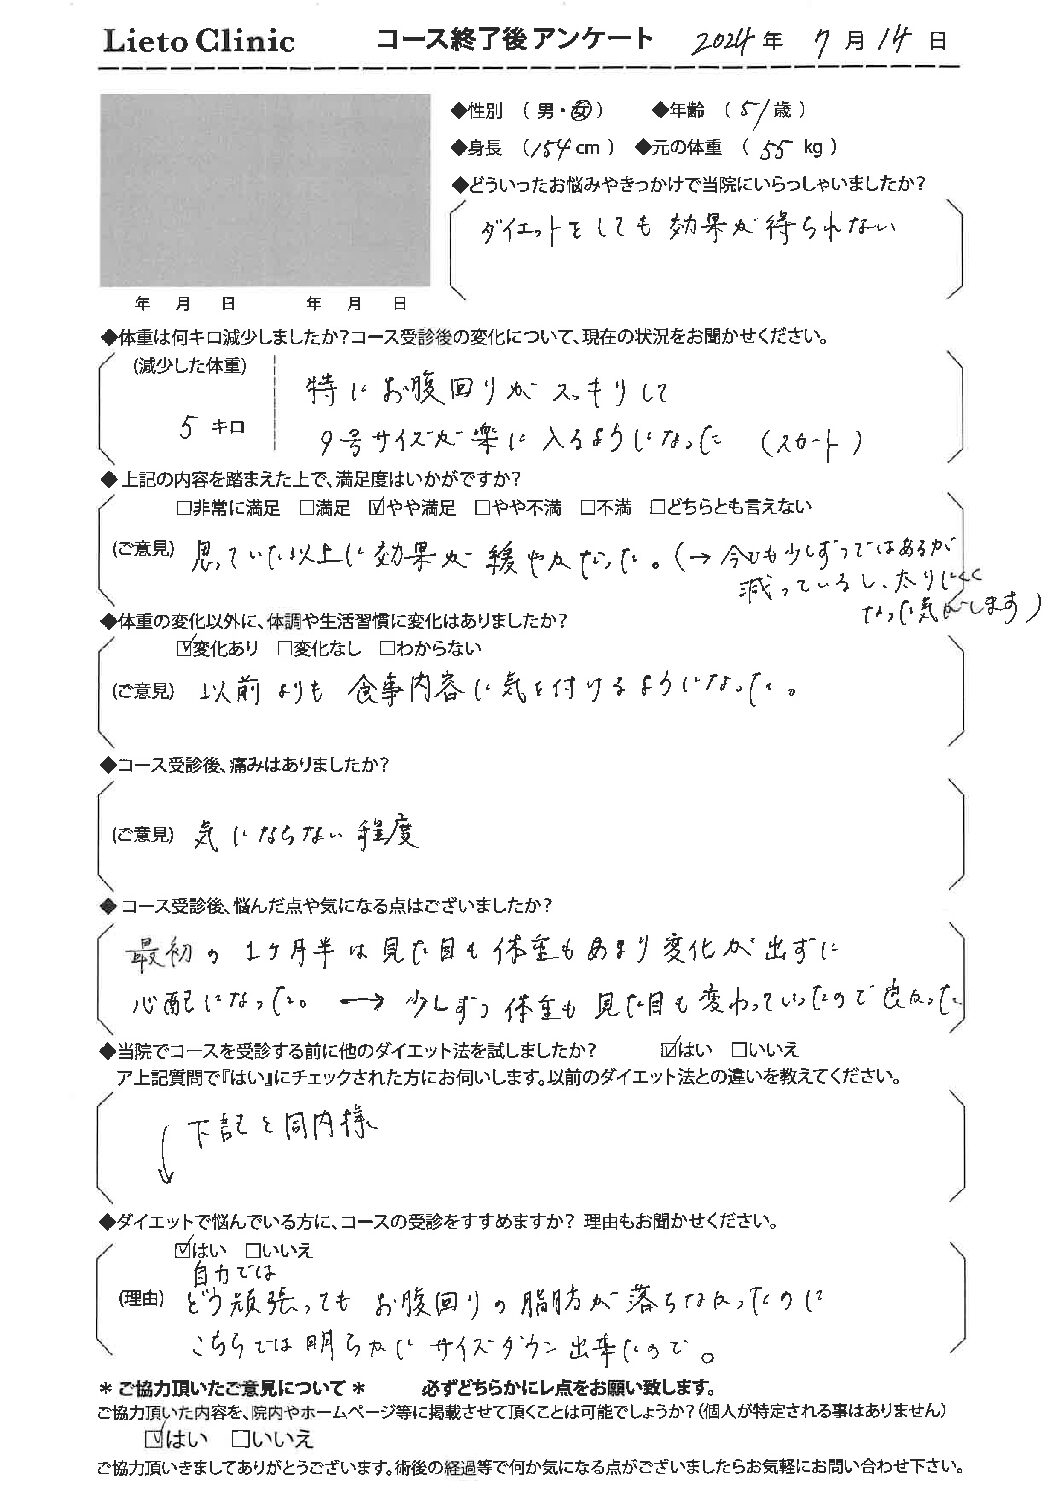 Lieto Clinic コース終了後アンケート 2024年 7月14日
◆性別 (男・女) ◆年齢 (51歳)
◆身長 (154cm) ◆元の体重 (55kg)
◆どういったお悩みやきっかけで当院にいらっしゃいましたか?
ダイエットをしても効果が得られない
年 月 日 年 月 日
◆体重は何キロ減少しましたか?コース受診後の変化について、現在の状況をお聞かせください。
(減少した体重)
5キロ
特にお腹回りがスッキリして
9号サイズが楽に入るようになった (スカート)
◆上記の内容を踏まえた上で、満足度はいかがですか?
□非常に満足 □満足 ☑やや満足 □やや不満 □不満 □どちらとも言えない
(ご意見)思っていた以上に効果が緩やかだった。(→今も少しずつではあるが
減っているし、太りにくく
なった気がします)
◆体重の変化以外に、体調や生活習慣に変化はありましたか?
☑変化あり □変化なし □わからない
(ご意見) 以前よりも食事内容に気を付けるようになった。
◆コース受診後、痛みはありましたか?
(ご意見) 気にならない程度
◆コース受診後、悩んだ点や気になる点はございましたか?
最初の1ヶ月半は見た目も体重もあまり変化が出ずに
心配になった。→少しずつ体重も見た目も変わっていったので良かった
◆当院でコースを受診する前に他のダイエット法を試しましたか? ☑はい □いいえ
ア上記質問で『はい』にチェックされた方にお伺いします。以前のダイエット法との違いを教えてください。
↓下記と同内様
◆ダイエットで悩んでいる方に、コースの受診をすすめますか? 理由もお聞かせください。
☑はい □いいえ
自力では
(理由) どう頑張ってもお腹回りの脂肪が落ちなかったのに
こちらでは明らかにサイズダウン出来たので。
*ご協力頂いたご意見について* 必ずどちらかにレ点をお願い致します。
ご協力頂いた内容を、院内やホームページ等に掲載させて頂くことは可能でしょうか?(個人が特定される事はありません)
☑はい □いいえ
ご協力頂いきましてありがとうございます。術後の経過等で何か気になる点がございましたらお気軽にお問い合わせ下さい。